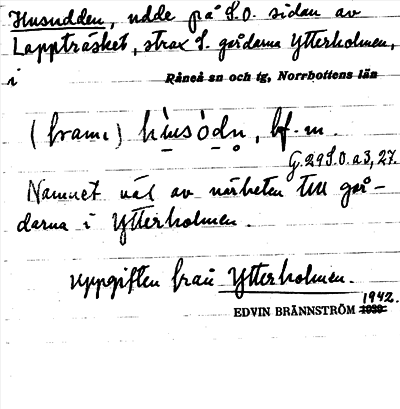 Husudden, udde på S.O. sidan av
Lappträsket, strax S. gårdarna Ytterholmen,
i Råneå sn och tg, Norrbottens län
(fram) husódn, bf. m.
G.29 S.O. a 3, 27.
Namnet väl av närheten till går-
darna i Ytterholmen.
Uppgiften från Ytterholmen.
1942.
EDVIN BRÄNNSTRÖM 1939